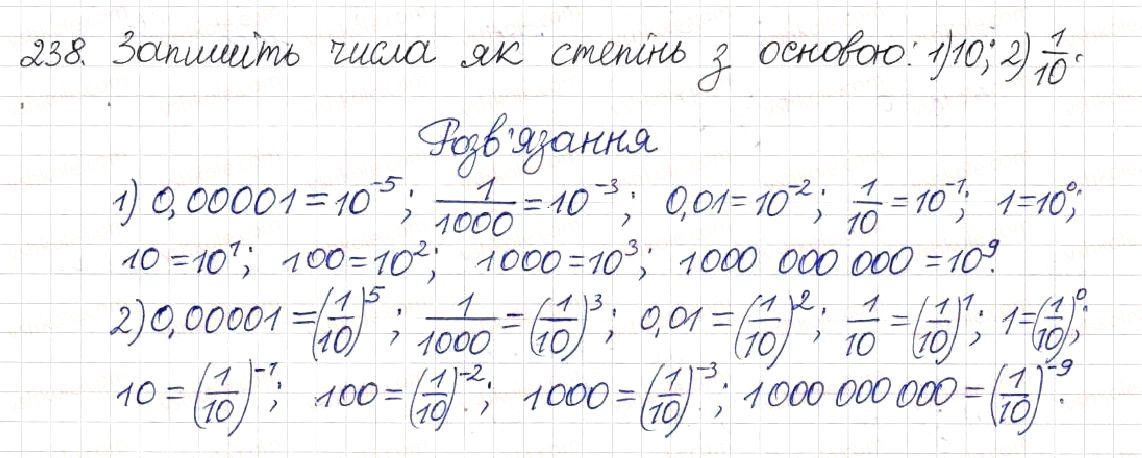 238. Запишіть числа як степінь з основою: 1) 10; 2) 1/10.
Розв'язання
1) 0,00001 = 10⁻⁵; 1/1000 = 10⁻³; 0,01 = 10⁻²; 1/10 = 10⁻¹; 1 = 10⁰;
10 = 10¹; 100 = 10²; 1000 = 10³; 1000 000 000 = 10⁹.
2) 0,00001 = (1/10)⁵; 1/1000 = (1/10)³; 0,01 = (1/10)²; 1/10 = (1/10)¹; 1 = (1/10)⁰;
10 = (1/10)⁻¹; 100 = (1/10)⁻²; 1000 = (1/10)⁻³; 1000 000 000 = (1/10)⁻⁹.